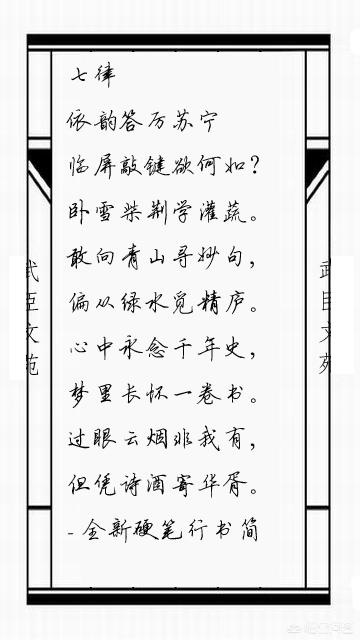 七律
依韵答万苏宁
临屏敲键欲何如？
卧雪柴荆学灌蔬。
敢向青山寻妙句，
偏从绿水觅精庐。
心中永念千年史，
梦里长怀一卷书。
过眼云烟非我有，
但凭诗酒寄华胥。
-全新硬笔行书简
武臣文苑
武臣文苑